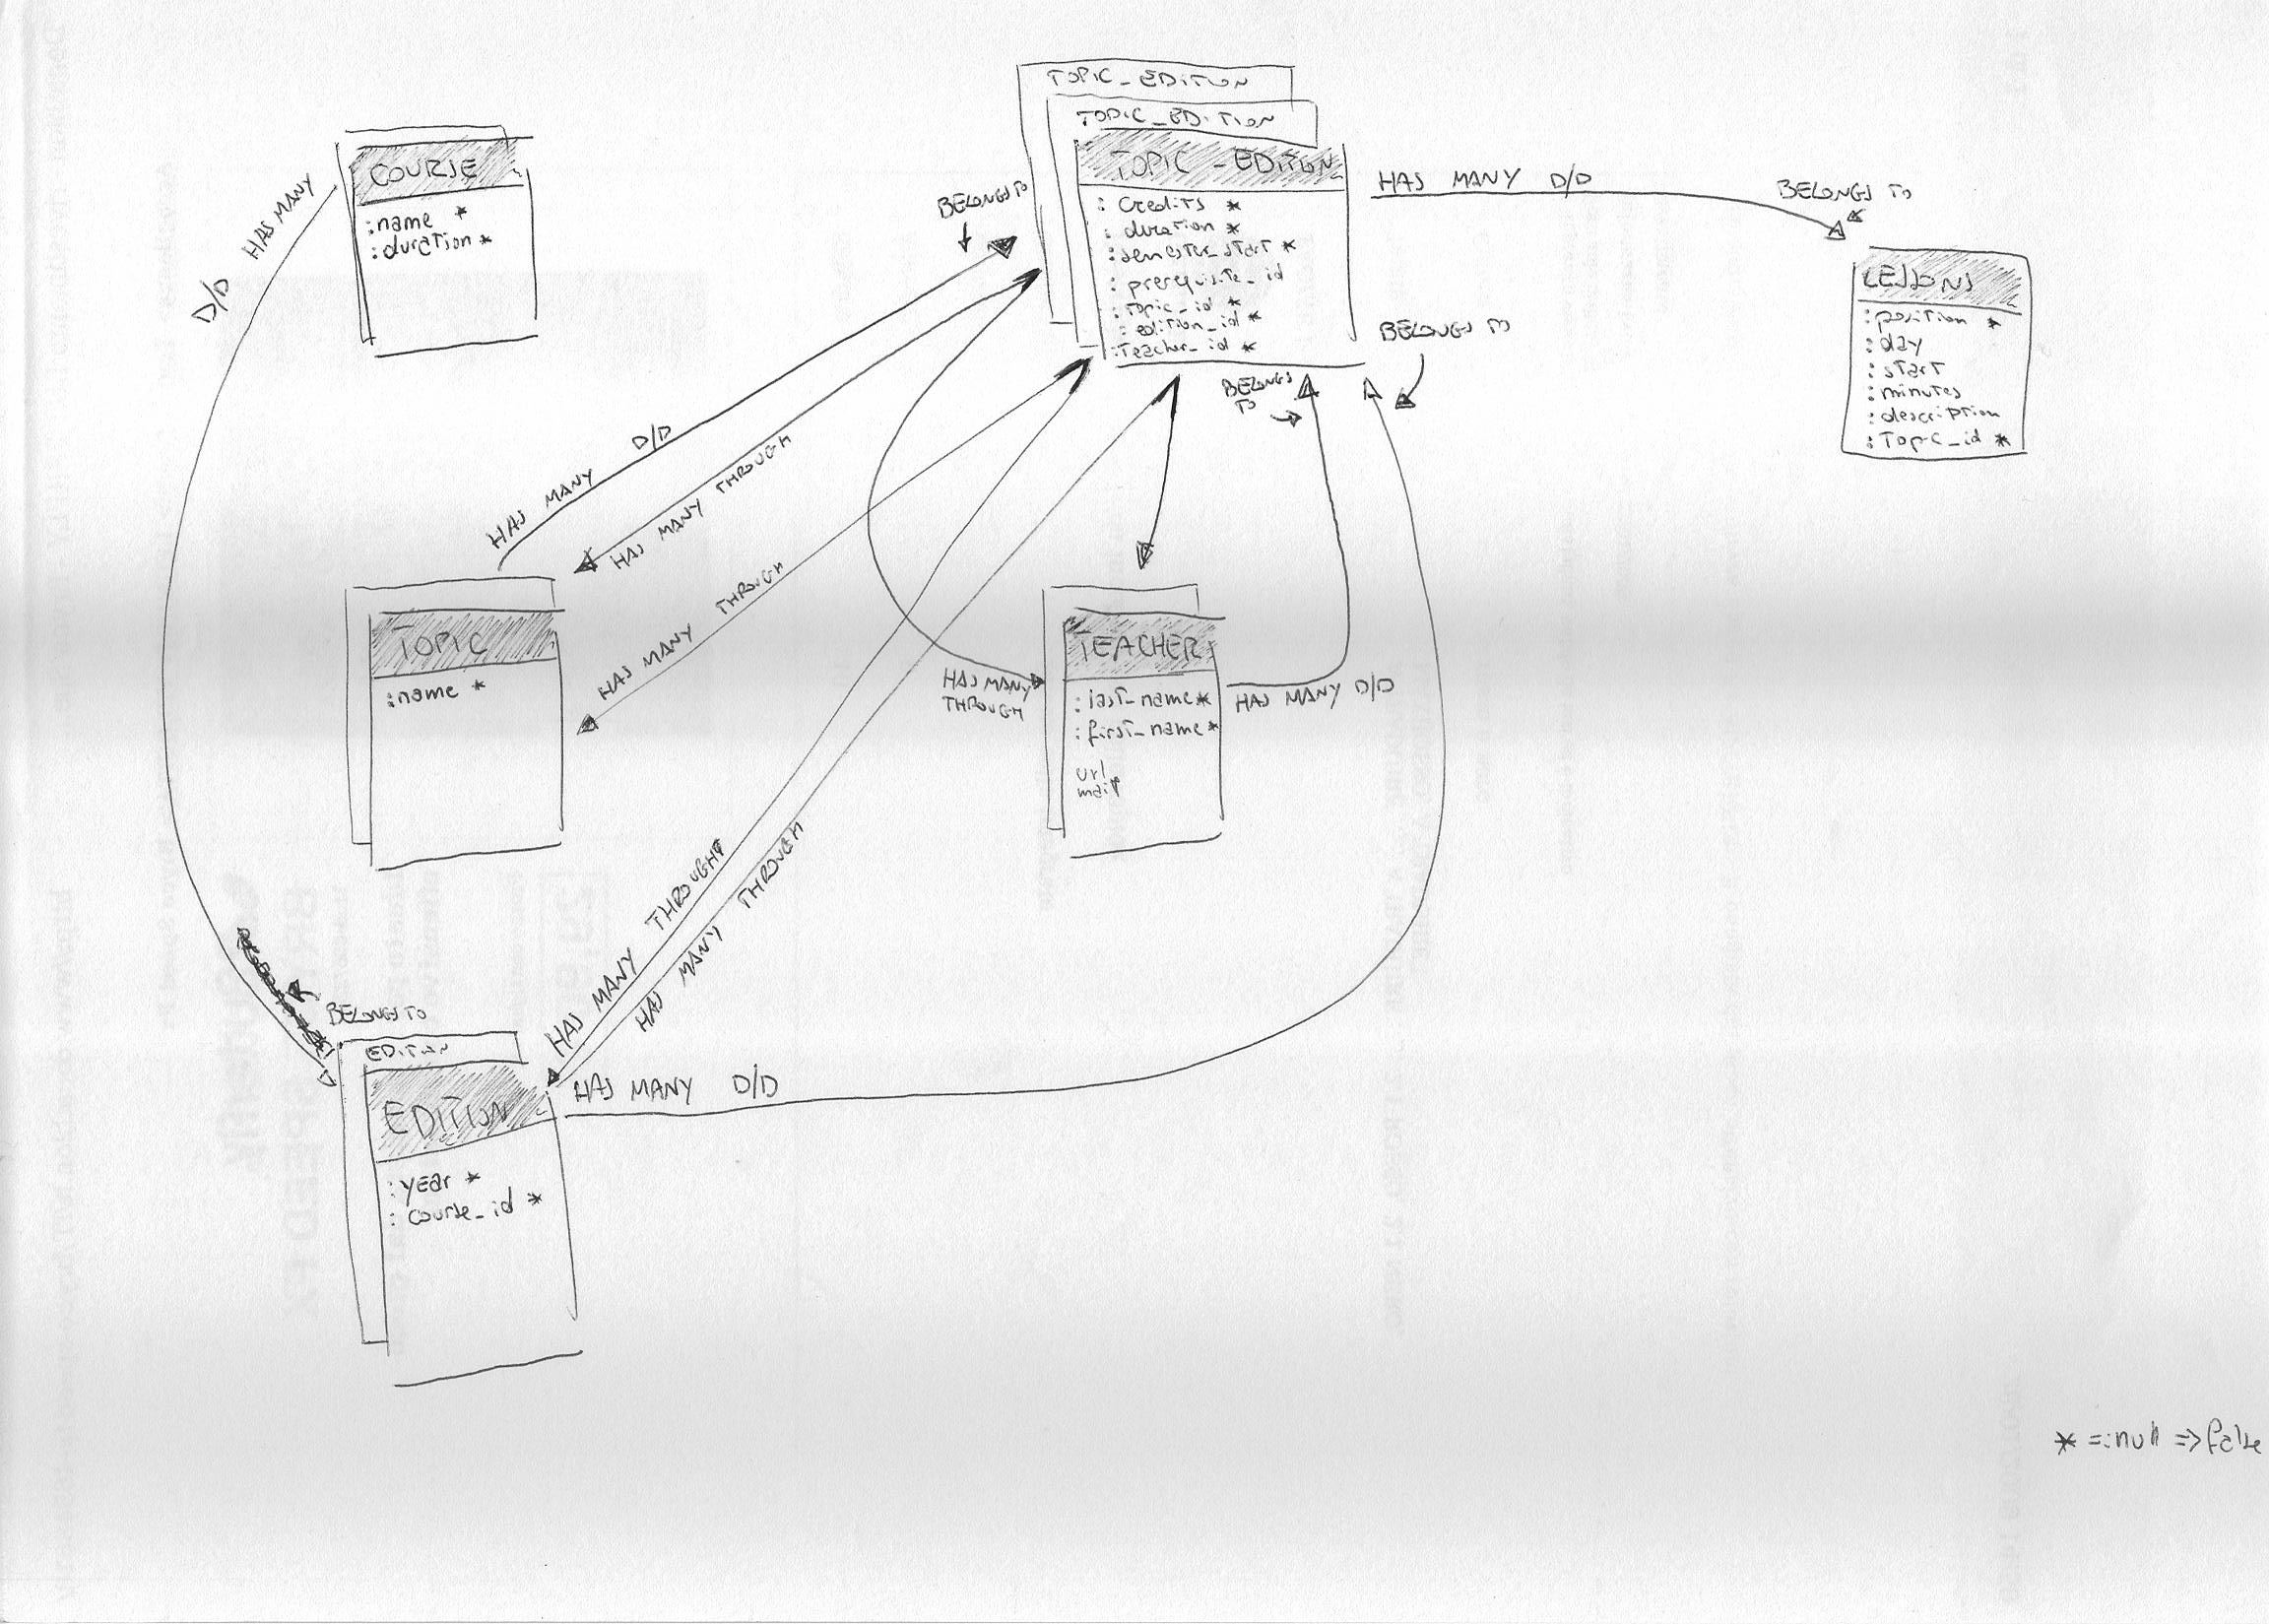 TOPIC_EDITION
TOPIC_EDITION
TOPIC_EDITION
: credits *
: duration *
:semester_start *
: prerequisite_id
: topic_id *
: edition_id *
:Teacher_id *
COURSE
:name *
:duration *
D/D HAS MANY
BELONGS TO
HAS MANY D/D
BELONGS TO
LESSONS
:position *
:day
:start
:minutes
:description
:Topic_id *
BELONGS TO
BELONGS
TO
HAS MANY D/D
HAS MANY THROUGH
HAS MANY THROUGH
TOPIC
:name *
TEACHER
:last_name *
:first_name *
url
mail
HAS MANY
THROUGH
HAS MANY D/D
HAS MANY THROUGHT
HAS MANY THROUGH
BELONGS TO
EDITION
EDITION
:year *
: course_id *
HAS MANY D/D
* =:null => false